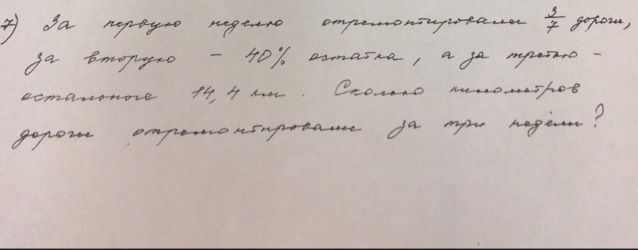 7) За первую неделю отремонтировали 3/7 дороги,
за вторую - 40% остатка, а за третью -
остальные 14,4 км. Сколько километров
дороги отремонтировали за три недели?